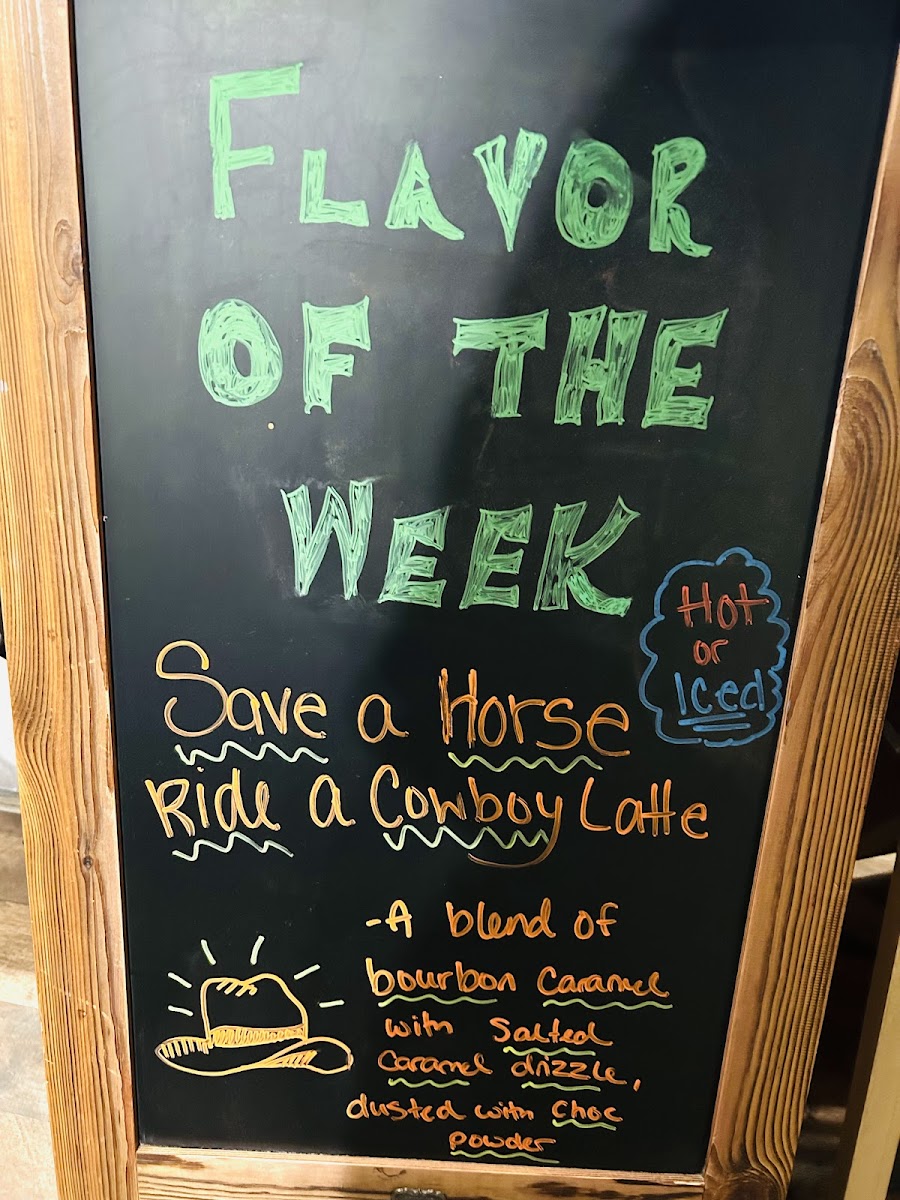 FLAVOR
OF THE
WEEK
Hot
or
Iced
Save a Horse
Ride a Cowboy Latte
-A blend of
bourbon Caramel
with Salted
Caramel drizzle,
dusted with Choc
powder